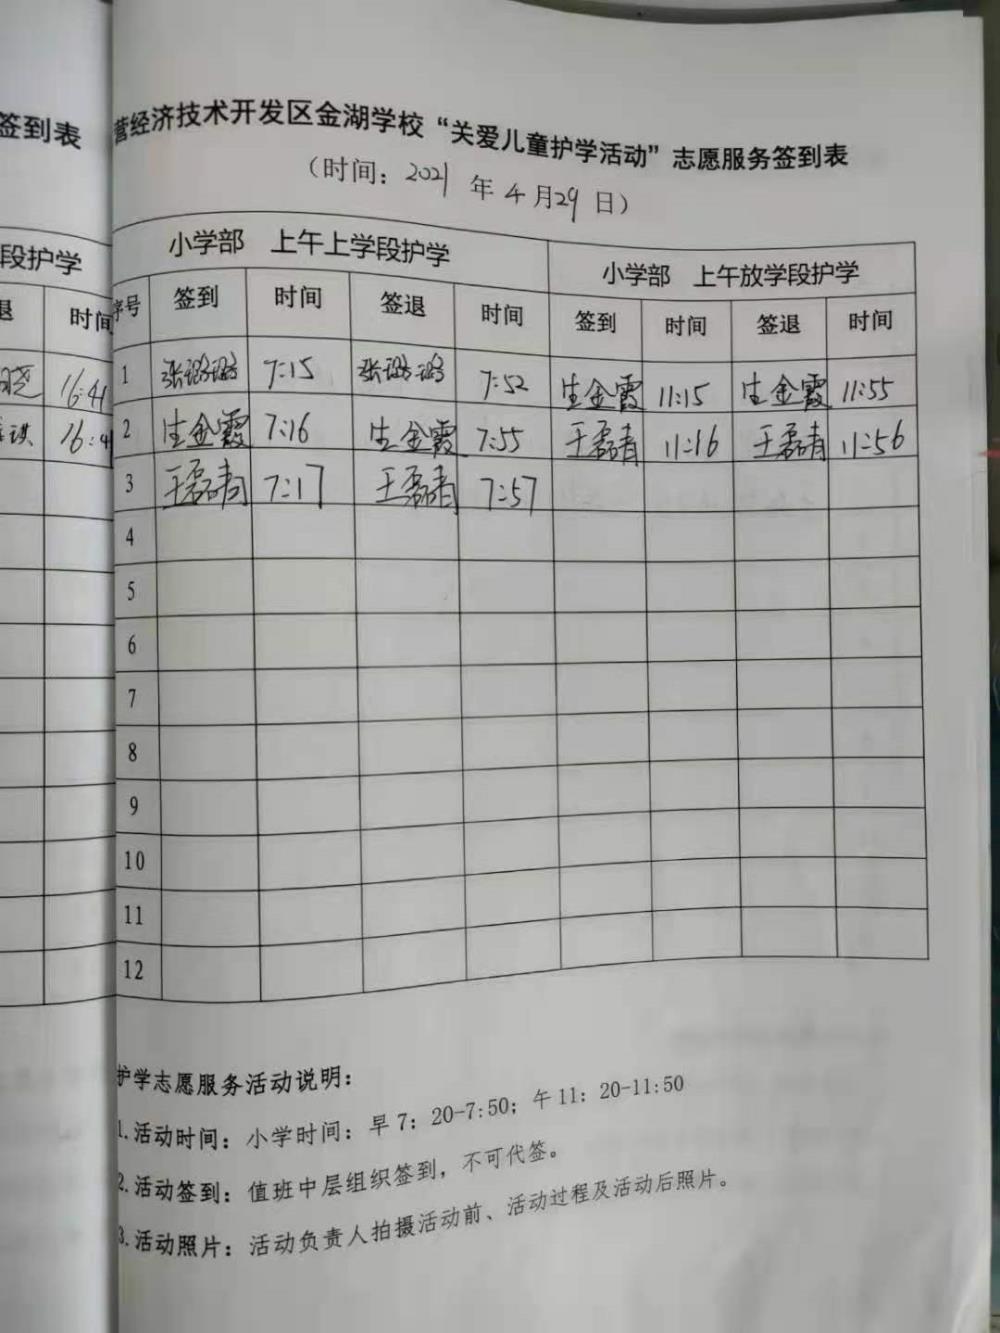 签到表
营经济技术开发区金湖学校“关爱儿童护学活动”志愿服务签到表
（时间：2021 年 4 月 29 日）
段护学
小学部 上午上学段护学 小学部 上午放学段护学
退 时间
序号 签到 时间 签退 时间 签到 时间 签退 时间
16:41
1 张璐璐 7:15 张璐璐 7:52 生金霞 11:15 生金霞 11:55
2 生金霞 7:16 生金霞 7:55 王磊青 11:16 王磊青 11:56
3 王磊青 7:17 王磊青 7:57
4
5
6
7
8
9
10
11
12
护学志愿服务活动说明：
1.活动时间：小学时间：早 7：20-7:50；午 11：20-11:50
2.活动签到：值班中层组织签到，不可代签。
3.活动照片：活动负责人拍摄活动前、活动过程及活动后照片。